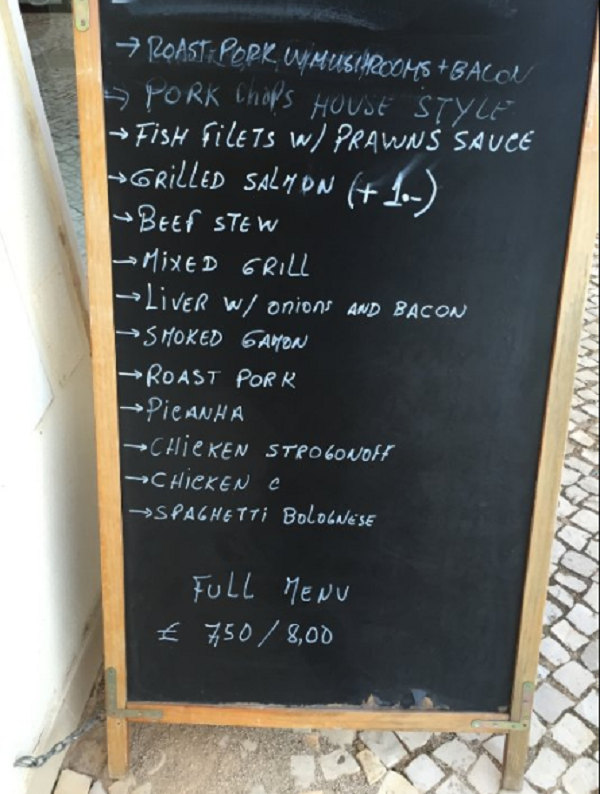 → ROAST PORK W/MUSHROOMS + BACON
→ PORK CHOPS HOUSE STYLE
→ FISH FILETS W/ PRAWNS SAUCE
→ GRILLED SALMON (+ 1.-)
→ BEEF STEW
→ MIXED GRILL
→ LIVER W/ ONIONS AND BACON
→ SMOKED GAMON
→ ROAST PORK
→ PICANHA
→ CHICKEN STROGONOFF
→ CHICKEN C
→ SPAGHETTI BOLOGNESE
FULL MENU
€ 7,50 / 8,00